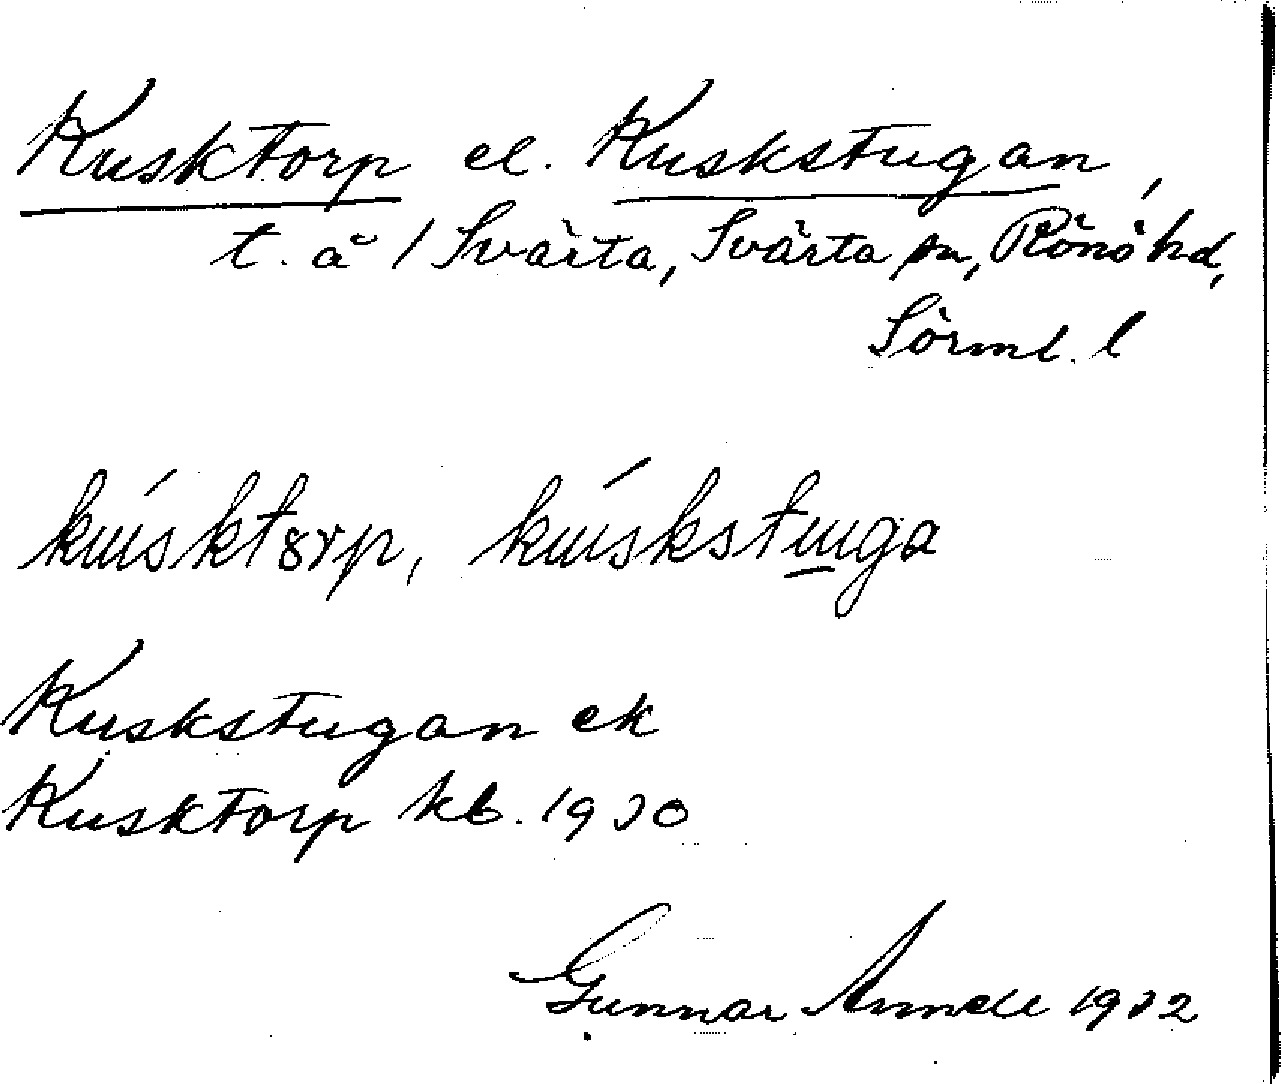 Kusktorp el. Kuskstugan,
t. å / Svärta, Svärta sn, Rönö hd,
Sörml. l
kuisktorp, kuiskstuuga
Kuskstugan ek
Kusktorp kb. 1930
Gunnar Annell 1932